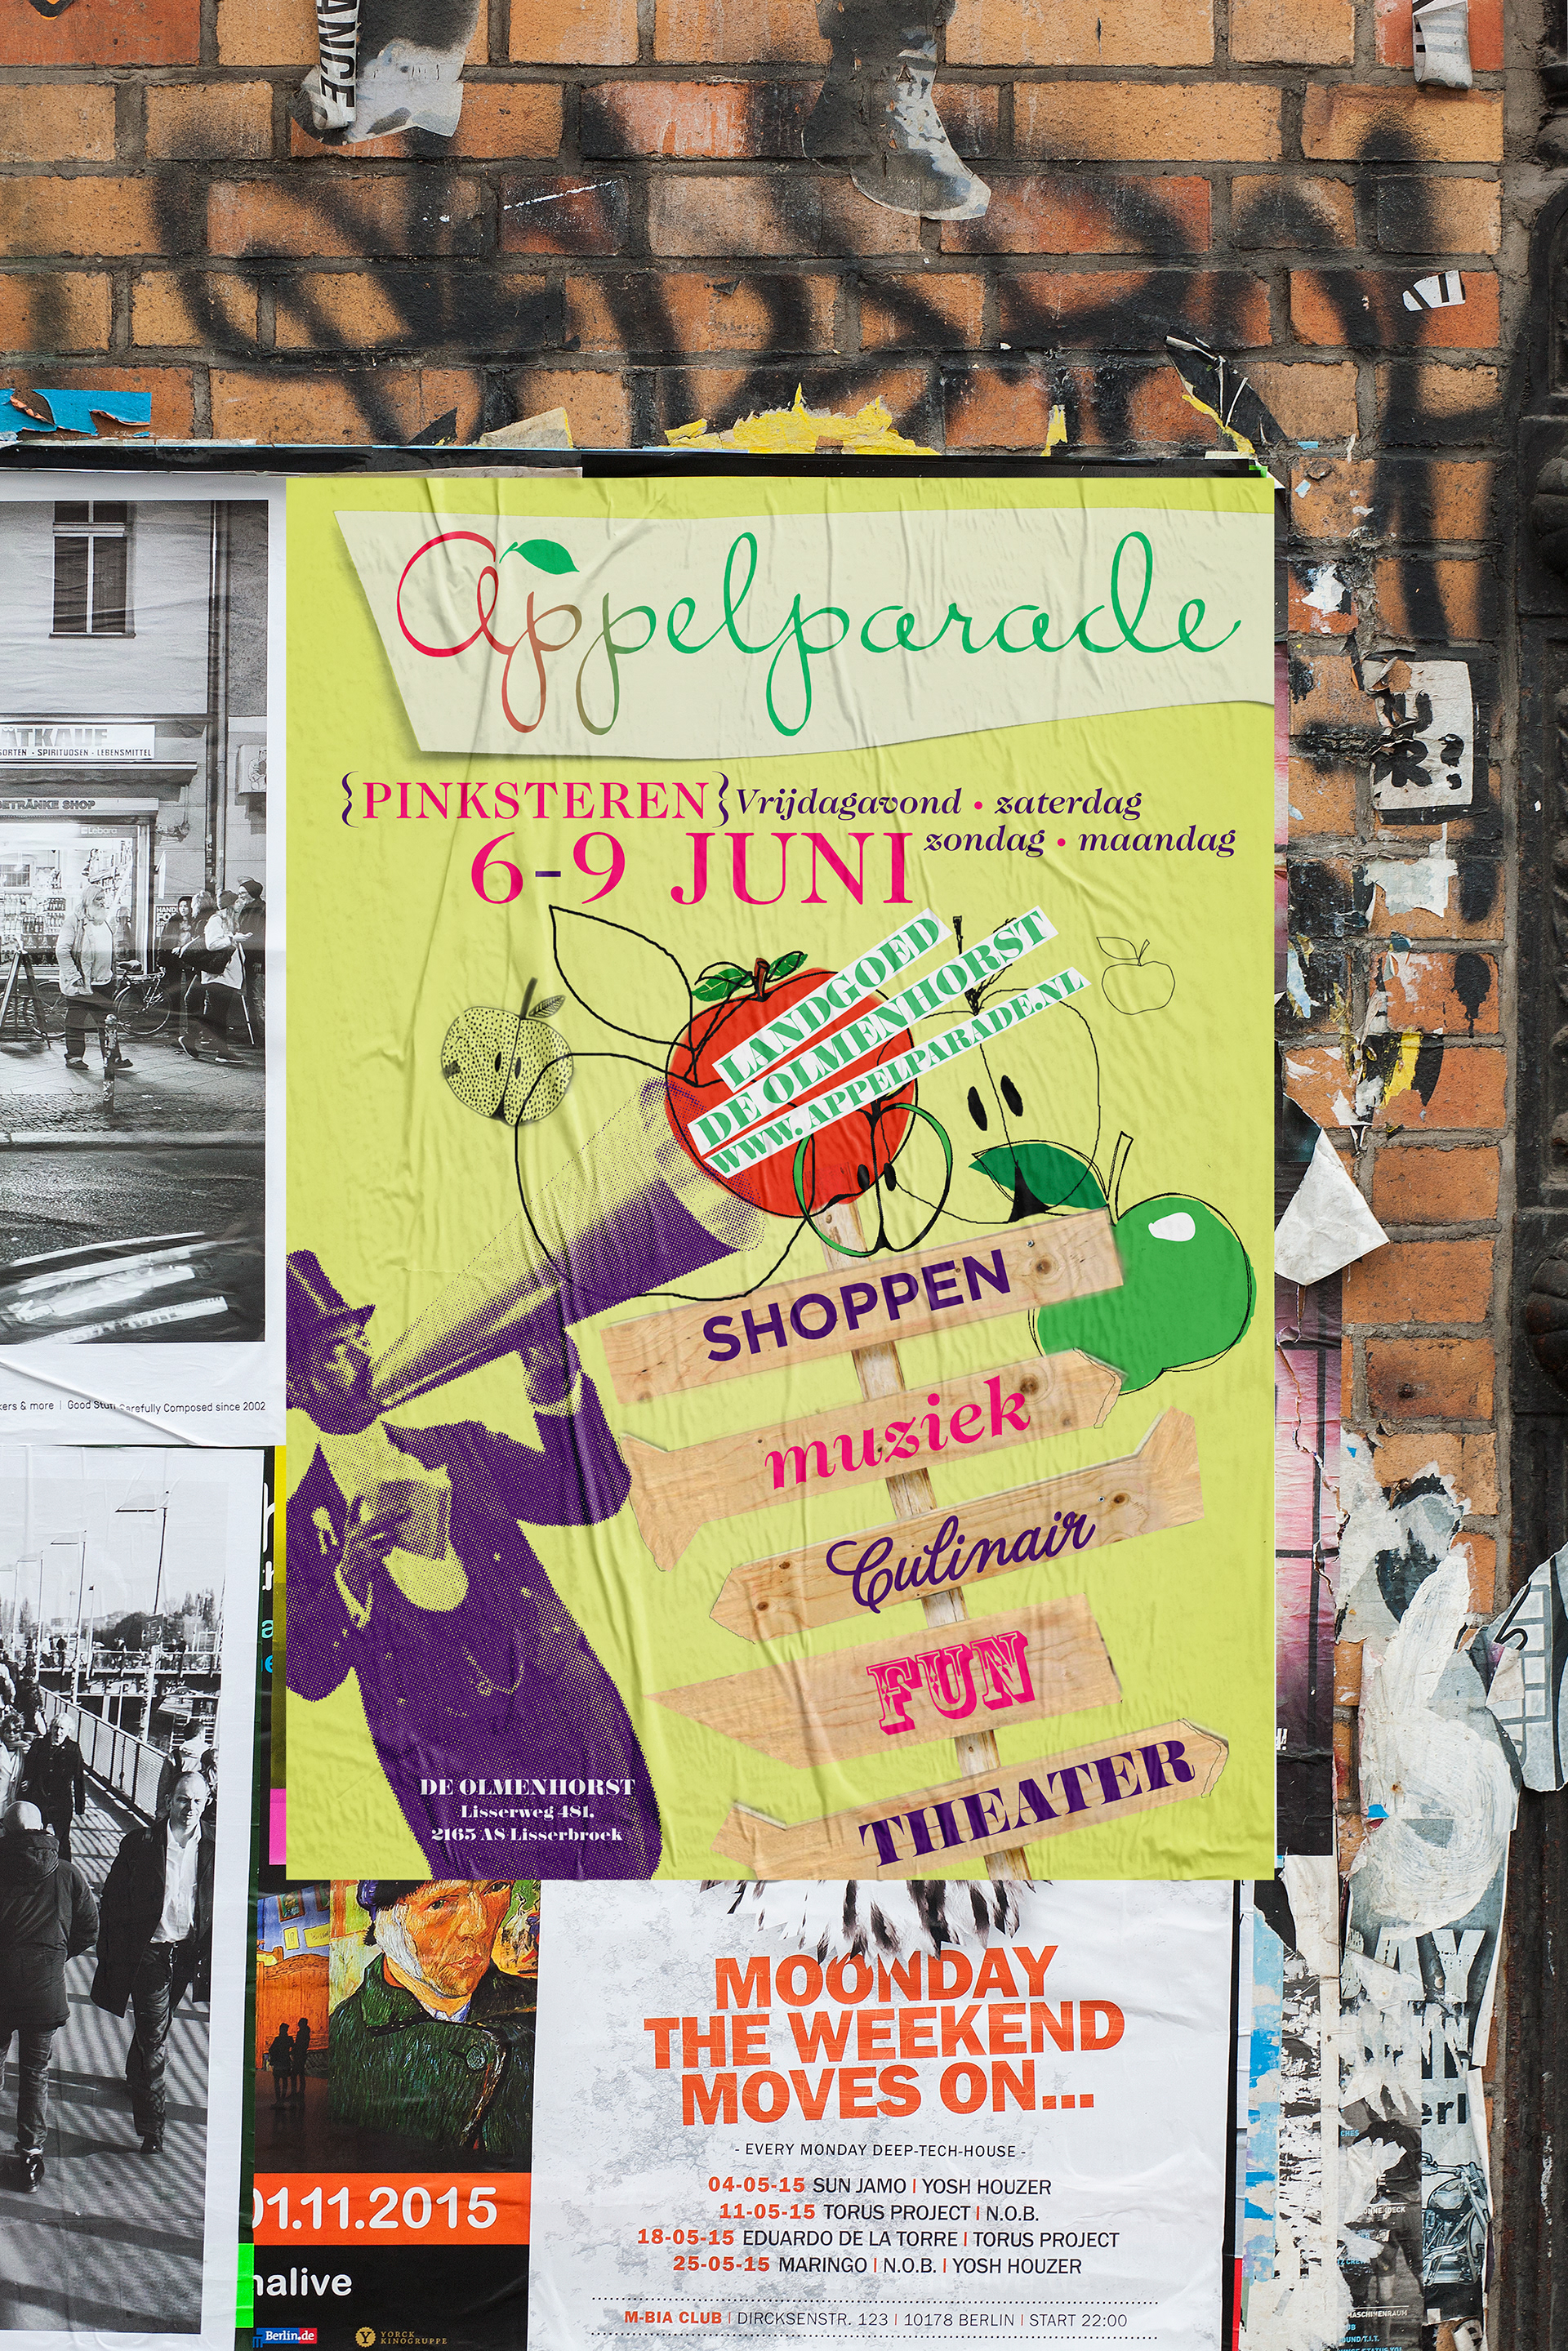 ANCE
Appelparade
{PINKSTEREN} Vrijdagavond • zaterdag
6-9 JUNI zondag • maandag
LANDGOED
DE OLMENHORST
WWW.APPELPARADE.NL
SHOPPEN
muziek
Culinair
FUN
THEATER
DE OLMENHORST
Lisserweg 481,
2165 AS Lisserbroek
ÄTKAUF
SORTEN - SPIRITUOSEN - LEBENSMITTEL
GETRÄNKE SHOP
Lebara
kers & more | Good Stuff Carefully Composed since 2002
01.11.2015
nalive
Berlin.de
YORCK
KINOGRUPPE
MOONDAY
THE WEEKEND
MOVES ON...
- EVERY MONDAY DEEP-TECH-HOUSE -
04-05-15 SUN JAMO | YOSH HOUZER
11-05-15 TORUS PROJECT | N.O.B.
18-05-15 EDUARDO DE LA TORRE | TORUS PROJECT
25-05-15 MARINGO | N.O.B. | YOSH HOUZER
M-BIA CLUB | DIRCKSENSTR. 123 | 10178 BERLIN | START 22:00
MASCHINENRAUM